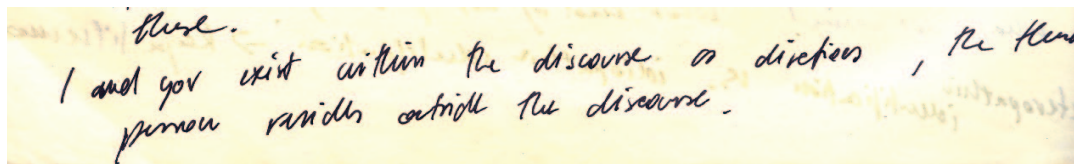 these.
I and you exist within the discourse as directions, the
person resides outside the discourse.